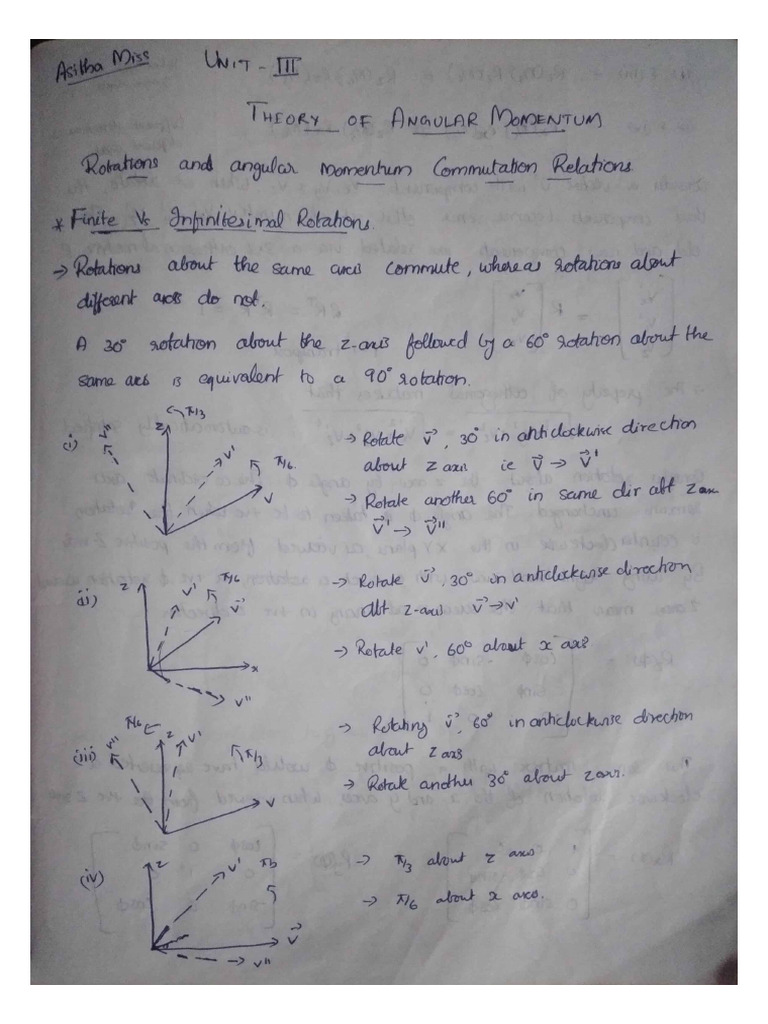 Asitha Miss
UNIT - III
THEORY OF ANGULAR MOMENTUM
Rotations and angular momentum Commutation Relations.
* Finite Vs Infinitesimal Rotations.
→ Rotations about the same axis commute, whereas rotations about
different axis do not.
A 30° rotation about the z-axis followed by a 60° rotation about the
same axis is equivalent to a 90° rotation.
(i)
v''
z
π/3
v'
π/6
v
→ Rotate v⃗, 30° in anticlockwise direction
about z axis ie v⃗ → v⃗'
→ Rotate another 60° in same dir abt z axis
v⃗' → v⃗''
ii)
z
v'
π/6
v⃗
x
v''
→ Rotate v⃗, 30° in anticlockwise direction
abt z-axis v⃗ → v'
→ Rotate v', 60° about x axis
(iii)
π/6
v''
z
v'
π/3
v
→ Rotating v⃗, 60° in anticlockwise direction
about z axis
→ Rotate another 30° about z axis.
(iv)
z
v'
π/3
v⃗
v''
→ π/3 about z axis
→ π/6 about x axis.